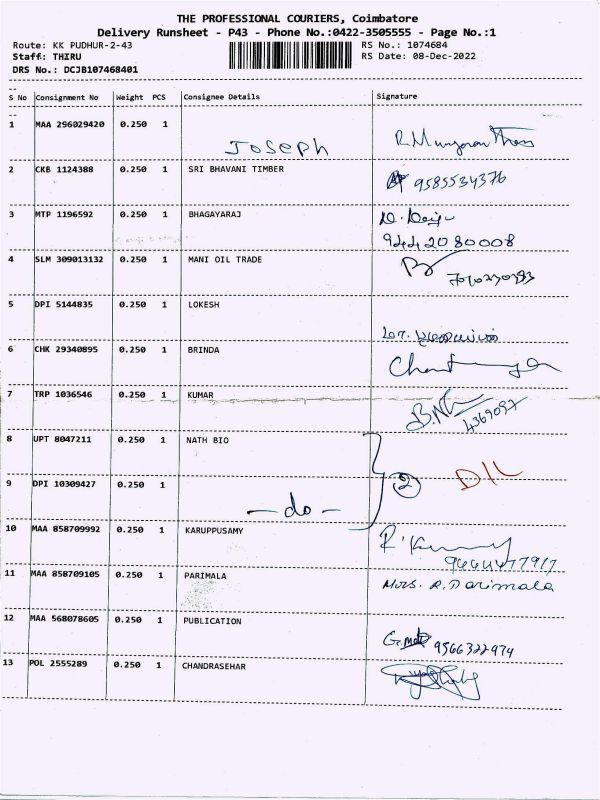 THE PROFESSIONAL COURIERS, Coimbatore
Delivery Runsheet - P43 - Phone No.:0422-3505555 - Page No.:1
Route: KK PUDHUR-2-43 RS No.: 1074684
Staff: THIRU RS Date: 08-Dec-2022
DRS No.: DCJB107468401
S No Consignment No Weight PCS Consignee Details Signature
1 MAA 296029420 0.250 1 Joseph
2 CKB 1124388 0.250 1 SRI BHAVANI TIMBER 9585534376
3 MTP 1196592 0.250 1 BHAGAYARAJ
9442080008
4 SLM 309013132 0.250 1 MANI OIL TRADE
5 DPI 5144835 0.250 1 LOKESH
6 CHK 29340895 0.250 1 BRINDA
7 TRP 1036546 0.250 1 KUMAR
4369097
8 UPT 8047211 0.250 1 NATH BIO
9 DPI 10309427 0.250 1 - do - 2 D/L
10 MAA 858709992 0.250 1 KARUPPUSAMY
11 MAA 858709105 0.250 1 PARIMALA Mrs. R. Parimala
12 MAA 568078605 0.250 1 PUBLICATION 9566322974
13 POL 2555289 0.250 1 CHANDRASEHAR